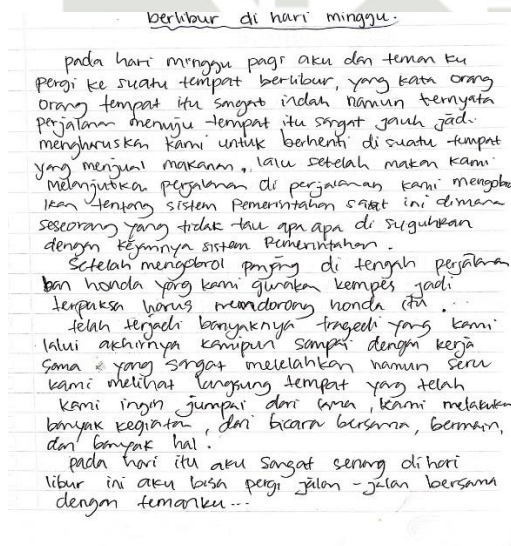 berlibur di hari minggu.
pada hari minggu pagi aku dan teman ku
pergi ke suatu tempat berlibur, yang kata orang
orang tempat itu sangat indah namun ternyata
perjalanan menuju tempat itu sangat jauh jadi
mengharuskan kami untuk berhenti di suatu tempat
yang menjual makanan, lalu setelah makan kami
melanjutkan perjalanan di perjalanan kami mengobo
lkan tentang sistem pemerintahan saat ini dimana
seseorang yang tidak tau apa apa di suguhkan
dengan kejamnya sistem pemerintahan.
Setelah mengobrol panjang di tengah perjalanan
ban honda yang kami gunakan kempes jadi
terpaksa harus mendorong honda itu.
telah terjadi banyaknya tragedi yang kami
lalui akhirnya kamipun sampai dengan kerja
sama yang sangat melelahkan namun seru
kami melihat langsung tempat yang telah
kami ingin jumpai dari lama, kami melakukan
banyak kegiatan, dari bicara bersama, bermain,
dan banyak hal.
pada hari itu aku sangat senang di hari
libur ini aku bisa pergi jalan-jalan bersama
dengan temanku...